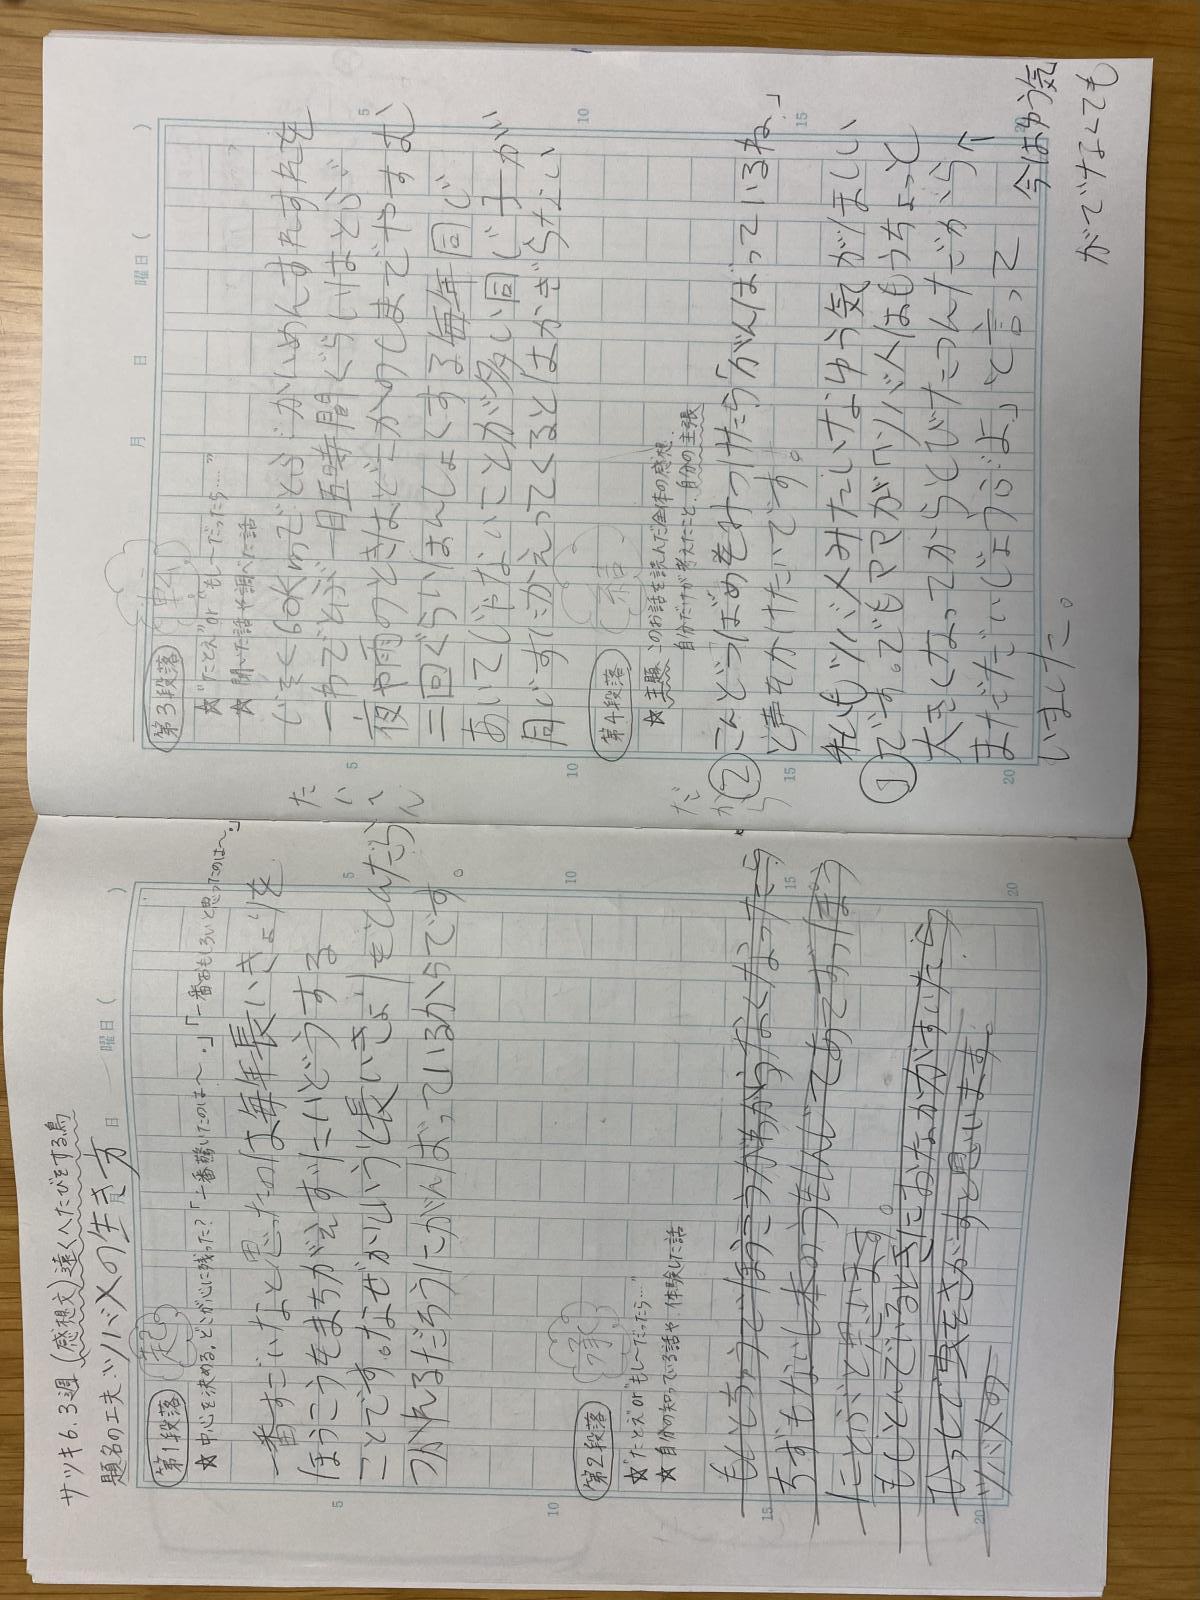 サツキ6.3週(感想文)遠くへたびをする鳥
題名の工夫:ツバメの生き方
月 日 曜日( )
第1段落
起
☆中心を決める。どこが心に残った?「一番驚いたのは〜。」「一番おもしろいと思ったのは〜。」
一番すごいなと思ったのは毎年長いきょりを
ほうこうをまちがえずにいどうする
ことです。なぜかというと長いきょりをとんだら
たいへん
つかれるだろうにがんばっているからです。
第2段落
承
☆"たとえ"or"もし〜だったら…"
☆自分の知っている話や、体験した話
もしとちゅうでほうこうがわからなくなったら
ちずもないし本のうもんしてあてずっぽう
にとぶと思います。
もしとんでいるときにおなかがすいたら
もぐって虫をさがすと思います。
ツバメの
月 日 曜日( )
第3段落
転
☆"たとえ"or"もし〜だったら……"
☆聞いた話や調べた話
じそく60Kmでとぶ
一わでとぶ 一日五時間ぐらいはとぶ
夜や雨のときはどこかのしまでやすむ
二回ぐらいはんしょくする毎年同じ
あいてじゃないことが多い同じ子が
同じすにかえってくるとはかぎらない
第4段落
結
☆主題 このお話を読んだ全体の感想、
自分だけが考えたこと、自分の主張
だから
②こんどつばめをみつけたら「がんばっているね。」
と声をかけたいです。
①私もツバメみたいなゆう気がほしい
です。でもママが「ツバメはもうちょっと
大きくなってからとびたつんだから
今はゆう気
がでなくても
まだだいじょうぶよ」と言って
いました。